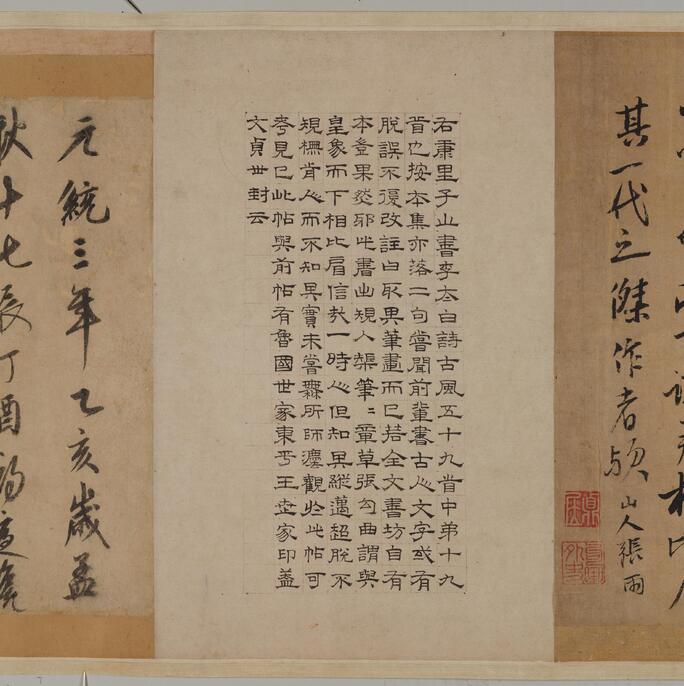 其一代之傑作者歟山人張雨
右康里子山書李太白詩古風五十九首中弟十九
首也按本集亦落二句嘗聞前輩書古人文字或有
脱誤不復改註白取其筆畫而已若全文書坊自有
本豈果然邪此書出規入榘筆〻章草張句曲謂與
皇象而下相比肩信哉一時人但知其縱邁超脱不
規橅昔人而不知其實未嘗無所師遽觀於此帖可
考見已此帖與前帖有魯國世家東平王世家印蓋
文貞世封云
元統三年乙亥歲孟
秋十七辰丁酉